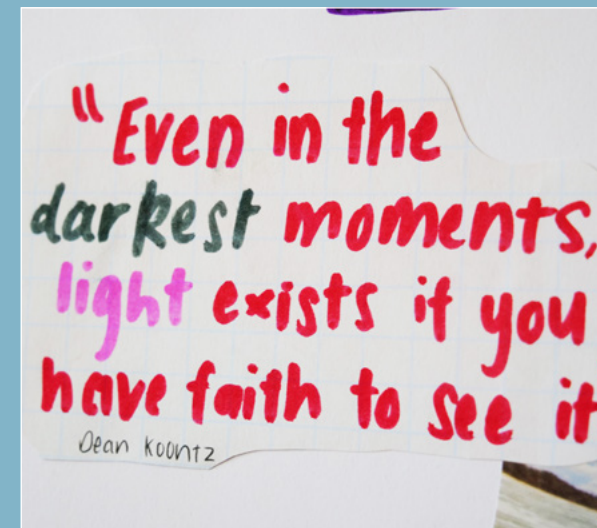 "Even in the
darkest moments,
light exists if you
have faith to see it
Dean Koontz